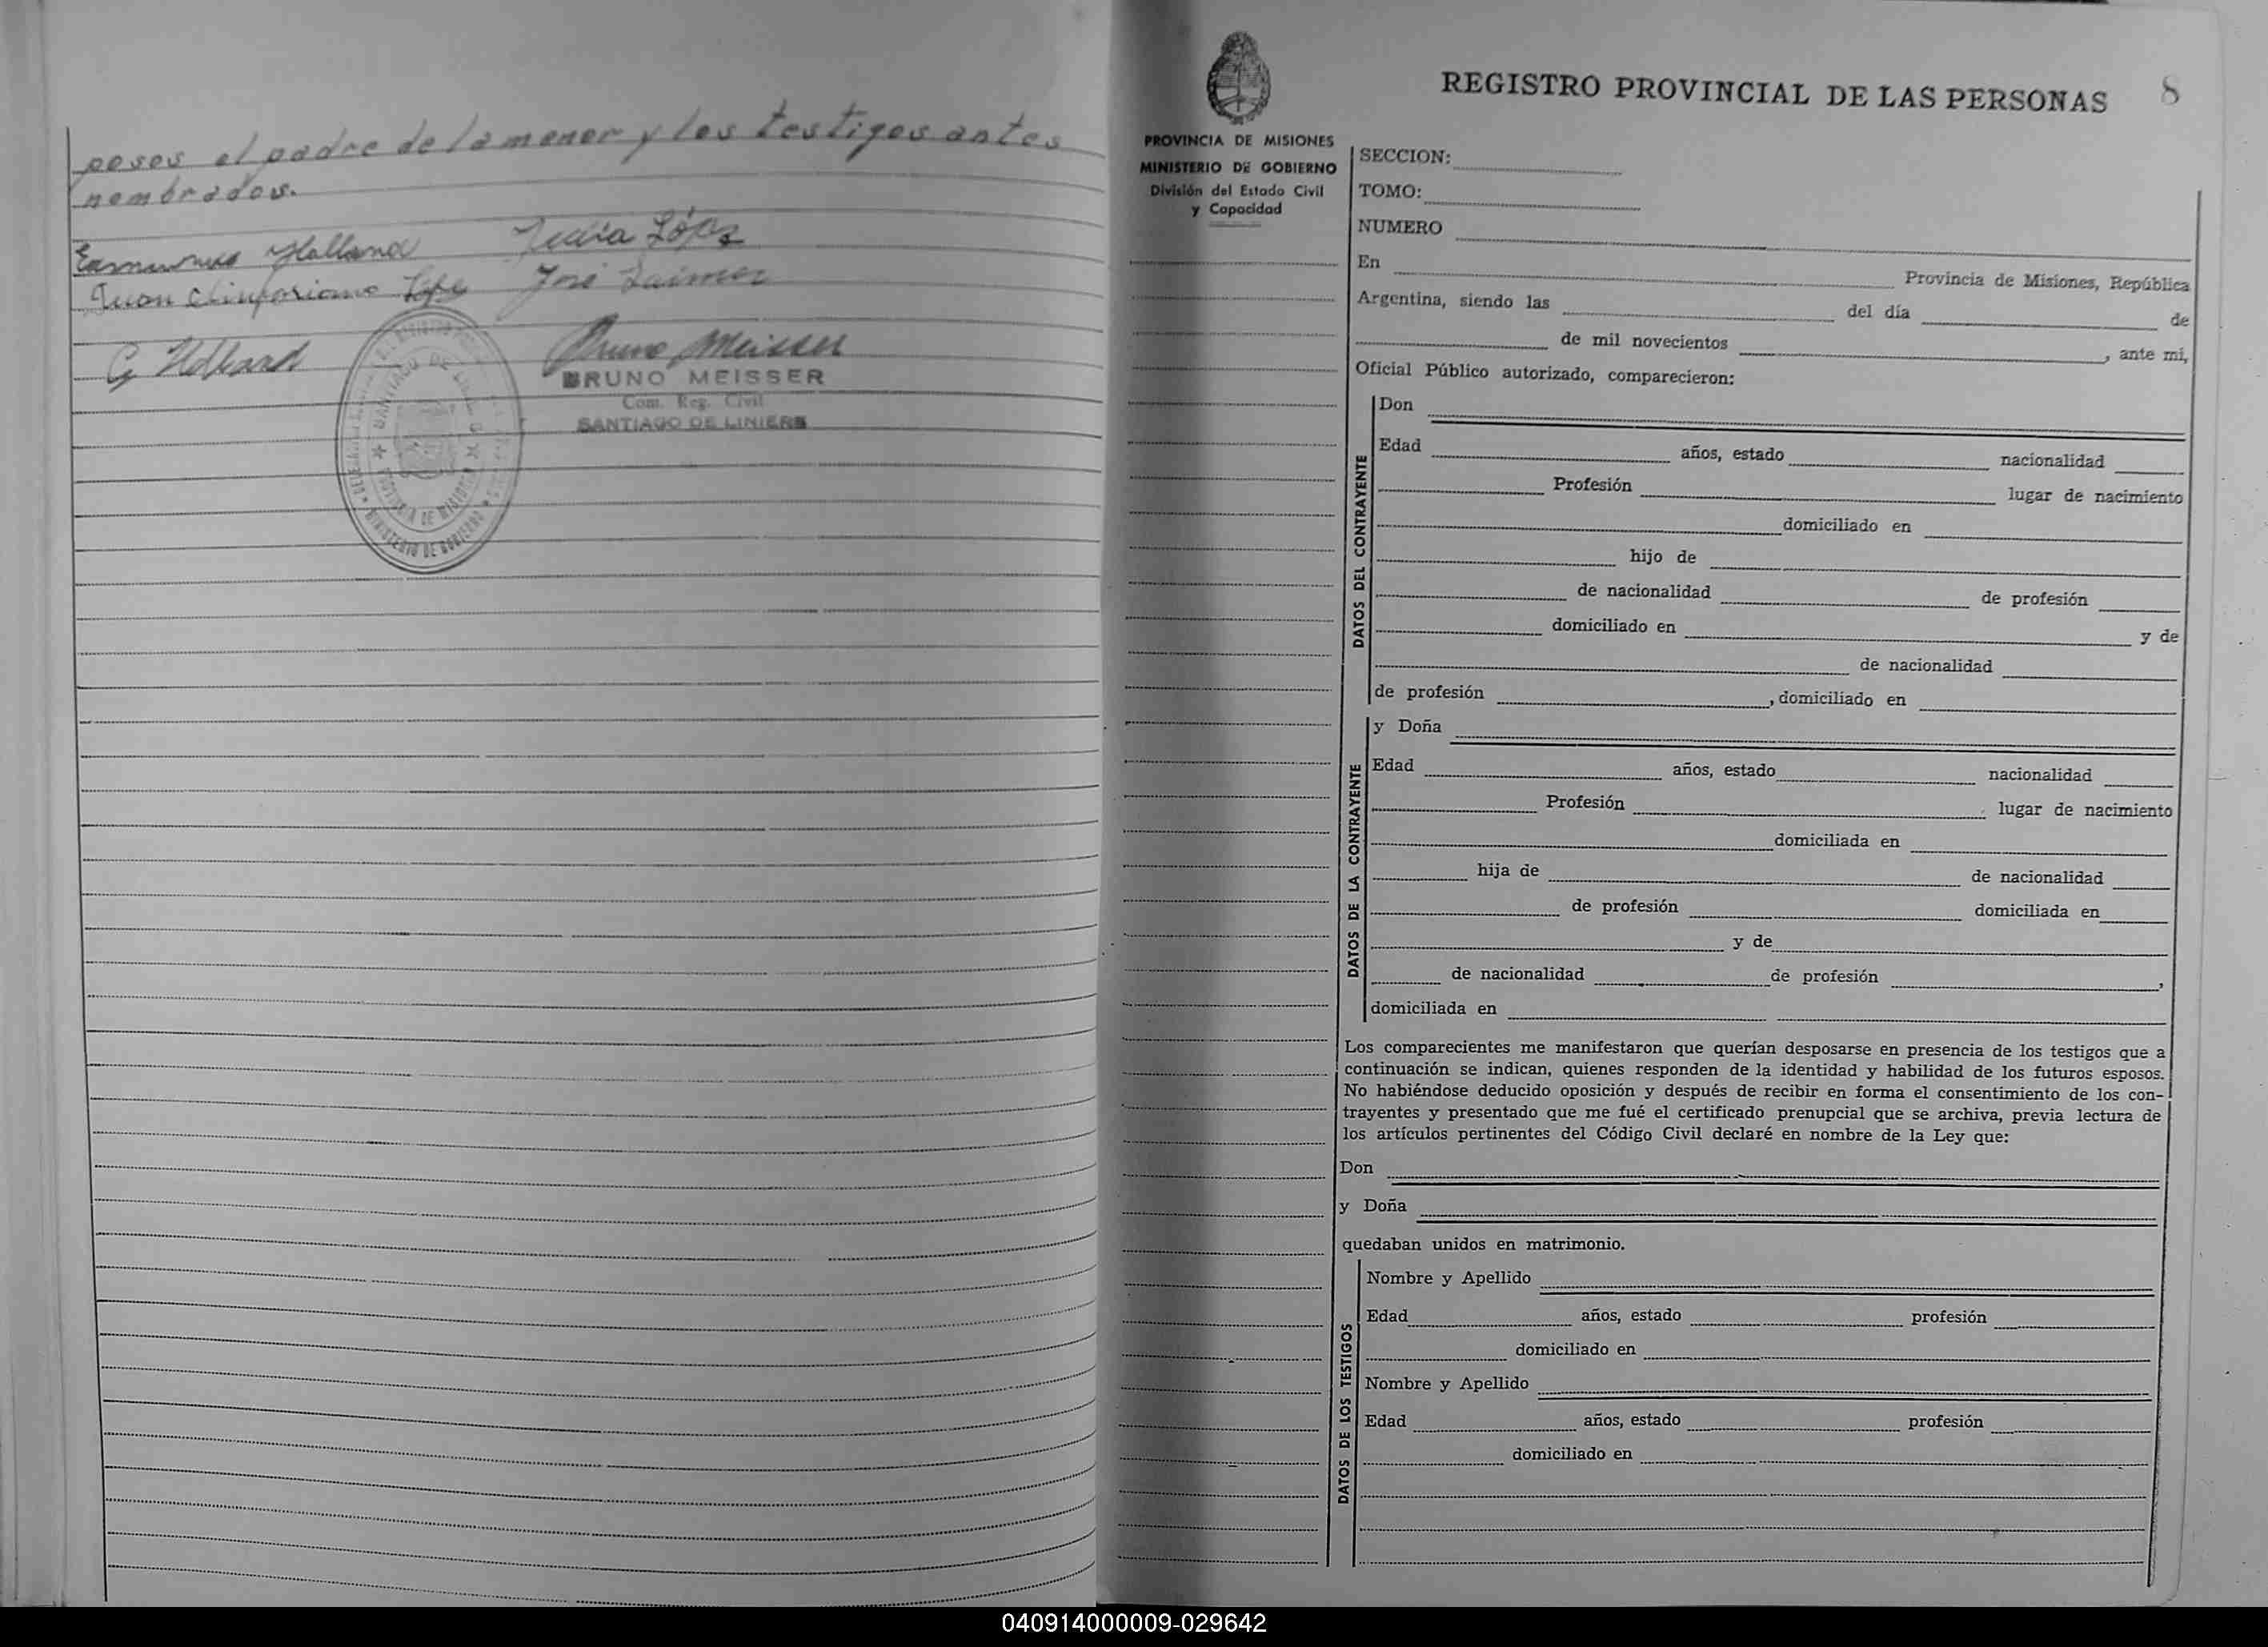 posos el padre de la menor y los testigos antes
nombrados.
Holland Julia López
Juan José Laimer
G Holland
Bruno Meisser
BRUNO MEISSER
Com. Reg. Civil
SANTIAGO DE LINIERS
SANTIAGO DE
PROVINCIA DE MISIONES
MINISTERIO DE GOBIERNO
REGISTRO PROVINCIAL DE LAS PERSONAS 8
PROVINCIA DE MISIONES
MINISTERIO DE GOBIERNO
División del Estado Civil
y Capacidad
SECCION:
TOMO:
NUMERO
En Provincia de Misiones, República
Argentina, siendo las del día de
de mil novecientos , ante mi,
Oficial Público autorizado, comparecieron:
DATOS DEL CONTRAYENTE
Don
Edad años, estado nacionalidad
Profesión lugar de nacimiento
domiciliado en
hijo de
de nacionalidad de profesión
domiciliado en y de
de nacionalidad
de profesión , domiciliado en
DATOS DE LA CONTRAYENTE
y Doña
Edad años, estado nacionalidad
Profesión lugar de nacimiento
domiciliada en
hija de de nacionalidad
de profesión domiciliada en
y de
de nacionalidad de profesión ,
domiciliada en
Los comparecientes me manifestaron que querían desposarse en presencia de los testigos que a
continuación se indican, quienes responden de la identidad y habilidad de los futuros esposos.
No habiéndose deducido oposición y después de recibir en forma el consentimiento de los con-
trayentes y presentado que me fué el certificado prenupcial que se archiva, previa lectura de
los artículos pertinentes del Código Civil declaré en nombre de la Ley que:
Don
y Doña
quedaban unidos en matrimonio.
DATOS DE LOS TESTIGOS
Nombre y Apellido
Edad años, estado profesión
domiciliado en
Nombre y Apellido
Edad años, estado profesión
domiciliado en
040914000009-029642